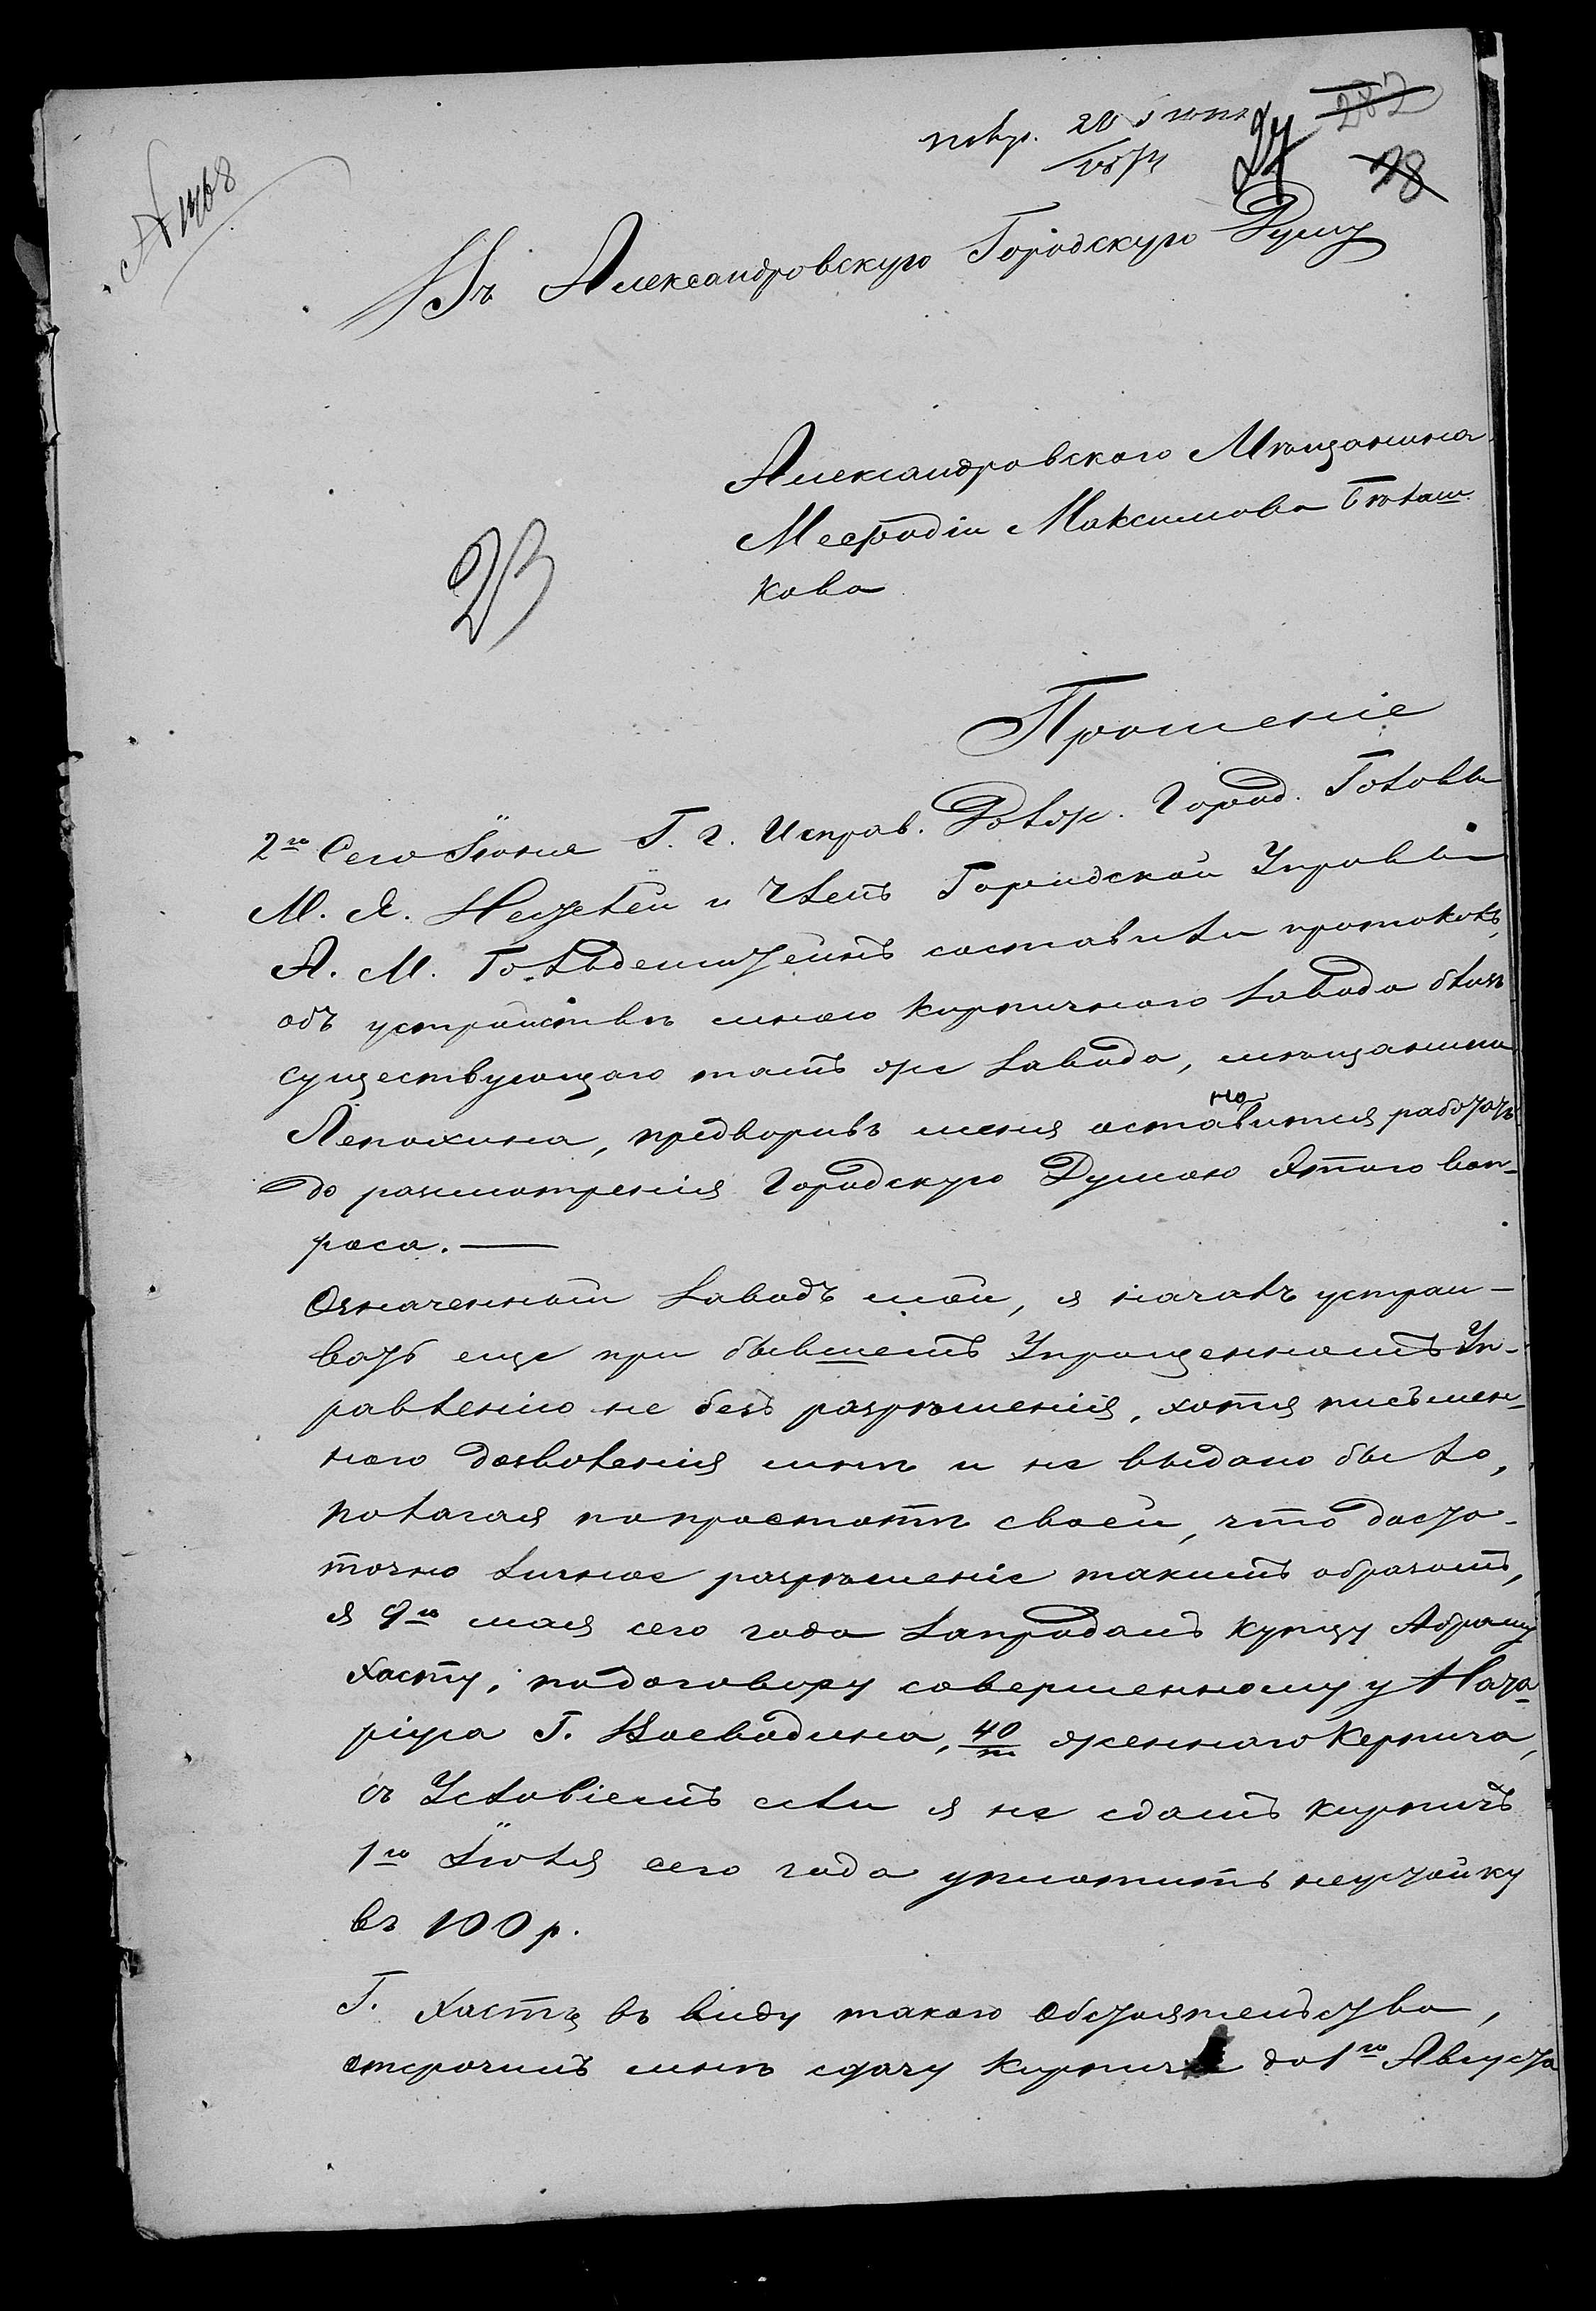 № 1468
282
20 Іюня
1874
27
78
Въ Александровскую Городскую Думу
Александровскаго Мѣщанина
Мефодія Максимова Бѣлаш
кова
23
Прошеніе
2го Сего Іюня Г. г. Исправ. Долж. Город. Головы
М. Я. и Членъ Городской Управы
А. М. Гольденштейнъ составили протоколъ,
объ устройствѣ мною кирпичнаго завода близъ
существующаго тамъ же завода, мѣщанина
Лепохина, предваривъ меня остановится работать
до разсмотренія Городскую Думою этого воп-
роса. —
Означенный заводъ мой, я началъ устраи-
вать еще при бывшемъ Упрощенномъ Уп-
равленію не безъ разрѣшенія, хотя письмен-
наго дозволенія мнѣ и не выдано было,
полагая попростотѣ своей, что доста-
точно личное разрѣшеніе такимъ образомъ,
я 9го мая сего года запродалъ купцу Абраму
Хасту, подоговору совершенному у Нота
ріуса Г. Воеводина, 40/т женнаго Керпича,
съ Условіемъ если я не сдамъ кирпичъ
1го Іюля сего года уплотить неустойку
въ 100 р.
Г. Хастъ въ виду такого обстоятельства,
отсрочилъ мнѣ сдачу Кирпича до 1го Августа